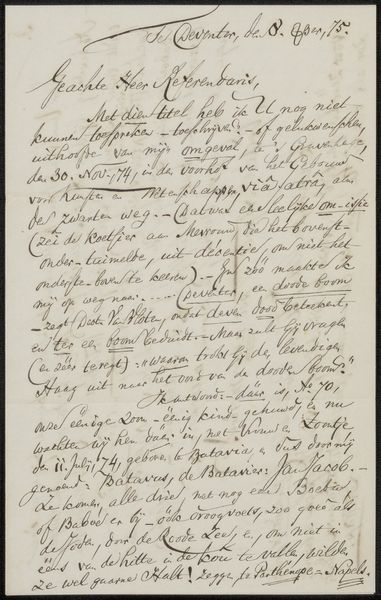 Te Deventer, den 8. 8ber, 75.
Geachte Heer Referendaris,
Met dien titel heb ik U nog niet
kunnen toespreken - toeschrijven? - of gelukwenschen,
uithoofde van mijn omgeval, te 's Gravenhage,
den 30. Nov. '74, in den voorhof van het Gebouw
voor Kunsten en Wetenschappen, viâ sacrâ, aan
den zwarten weg. - (Dat was een leelijke om-
(zei de koetsier aan Mevrouw, die het bovenst-
onder-tuimelde, uit decentie, om niet het
onderste-boven te keeren) - En zóó maakte ik
mij op weg naar ..... (Deventer, een doode boom
- zegt Doct. Van Vloten, omdat deven dood beteekent,
en ter een boom beduidt. - Maar zult Gij vragen
(en zéér te regt): "waarom trokt Gij den levendigen
Haag uit naar het oord van den dooden boom?"
Ik antwoord: - dáár is, No 70,
onze éénige Zoon - éénig kind - gehuisd, en nu
wachten wij hen dáár in, met Vrouw en Zoontje
den 11. Julij '74, geboren te Batavia en dus door mij
genoemd: Batavus, de Batavier: Jan Jacob. -
Ze komen, alle drie, met nog een Baboe
of Baboe er bij - óók droogvoets, zoo goed als
de Joden, door de Roode Zee, en, om niet in
ééns van de hitte in de kou te vallen, wilden
ze wel gaarne Halt! zeggen, te Parthenope = Napels.